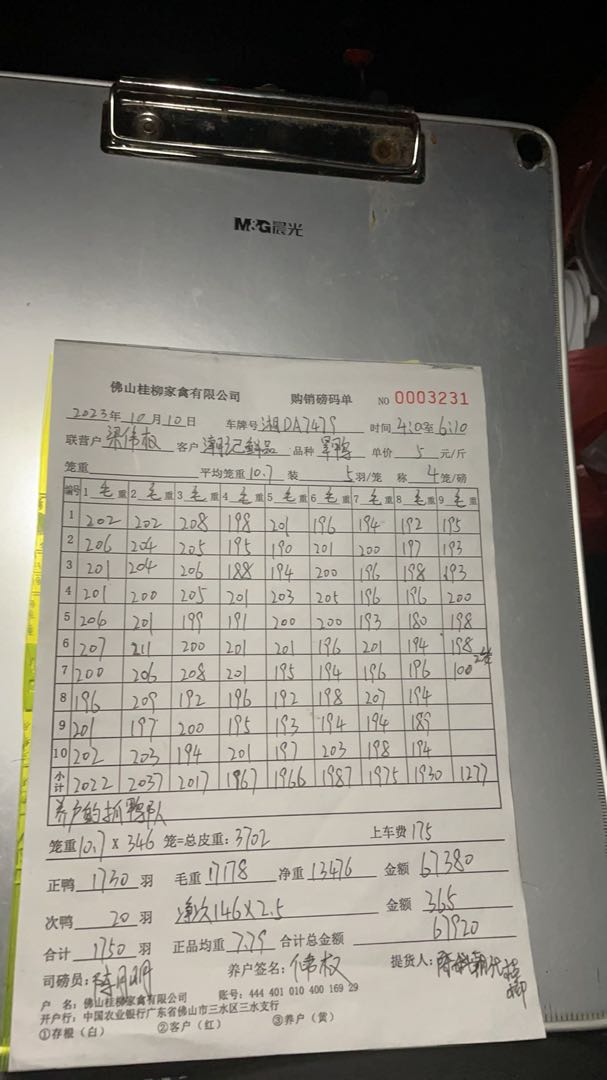 M&G晨光
佛山桂柳家禽有限公司 购销磅码单 NO 0003231
2023年10月10日 车牌号 湘DA7479 时间 4:0至6:10
联营户 梁伟权 客户 鲜品 品种 单价 5 元/斤
笼重 平均笼重 10.7 装 5 羽/笼 称 4 笼/磅
编号 1 毛重 2 毛重 3 毛重 4 毛重 5 毛重 6 毛重 7 毛重 8 毛重 9 毛重
1 202 202 208 198 201 196 194 192 195
2 206 204 205 195 190 201 200 197 193
3 201 204 206 188 194 200 196 198 193
4 201 200 205 201 203 205 196 196 200
5 206 201 199 191 200 200 193 180 198
6 207 211 200 201 201 196 201 194 198
7 200 206 208 201 195 194 196 196 100 2笼
8 196 209 192 196 192 198 207 194
9 201 197 200 195 193 194 194 189
10 202 203 194 201 197 203 198 194
小计 2022 2037 2017 1967 1966 1987 1975 1930 1277
养户的抓鸭队
笼重 10.7 X 346 笼=总皮重: 3702 上车费 175
正鸭 1730 羽 毛重 17178 净重 13476 金额 67380
次鸭 20 羽 146×2.5 金额 365
合计 1750 羽 正品均重 7.79 合计总金额 67920
司磅员: 养户签名: 伟权 提货人:
户 名: 佛山桂柳家禽有限公司 账号: 444 401 010 400 169 29
开户行: 中国农业银行广东省佛山市三水区三水支行
①存根(白) ②客户(红) ③养户(黄)